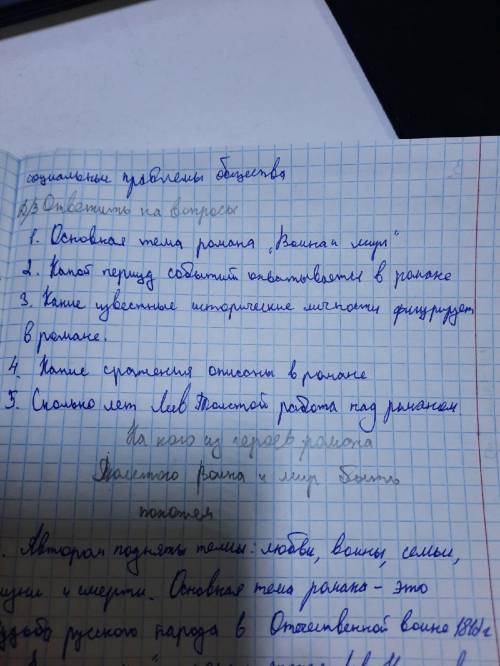 социальные проблемы общества
Д/З Ответить на вопросы
1. Основная тема романа „Война и мир"
2. Какой период событий охватывается в романе
3. Какие известные исторические личности фигурирует
в романе.
4. Какие сражения описаны в романе
5. Сколько лет Лев Толстой работа над романом
На кого из героев романа
Толстого Война и мир быть
похожем
. Автором подняты темы: любви, войны, семьи,
изни и смерти. Основная тема романа - это
удьба русского народа в Отечественной войне 1812г